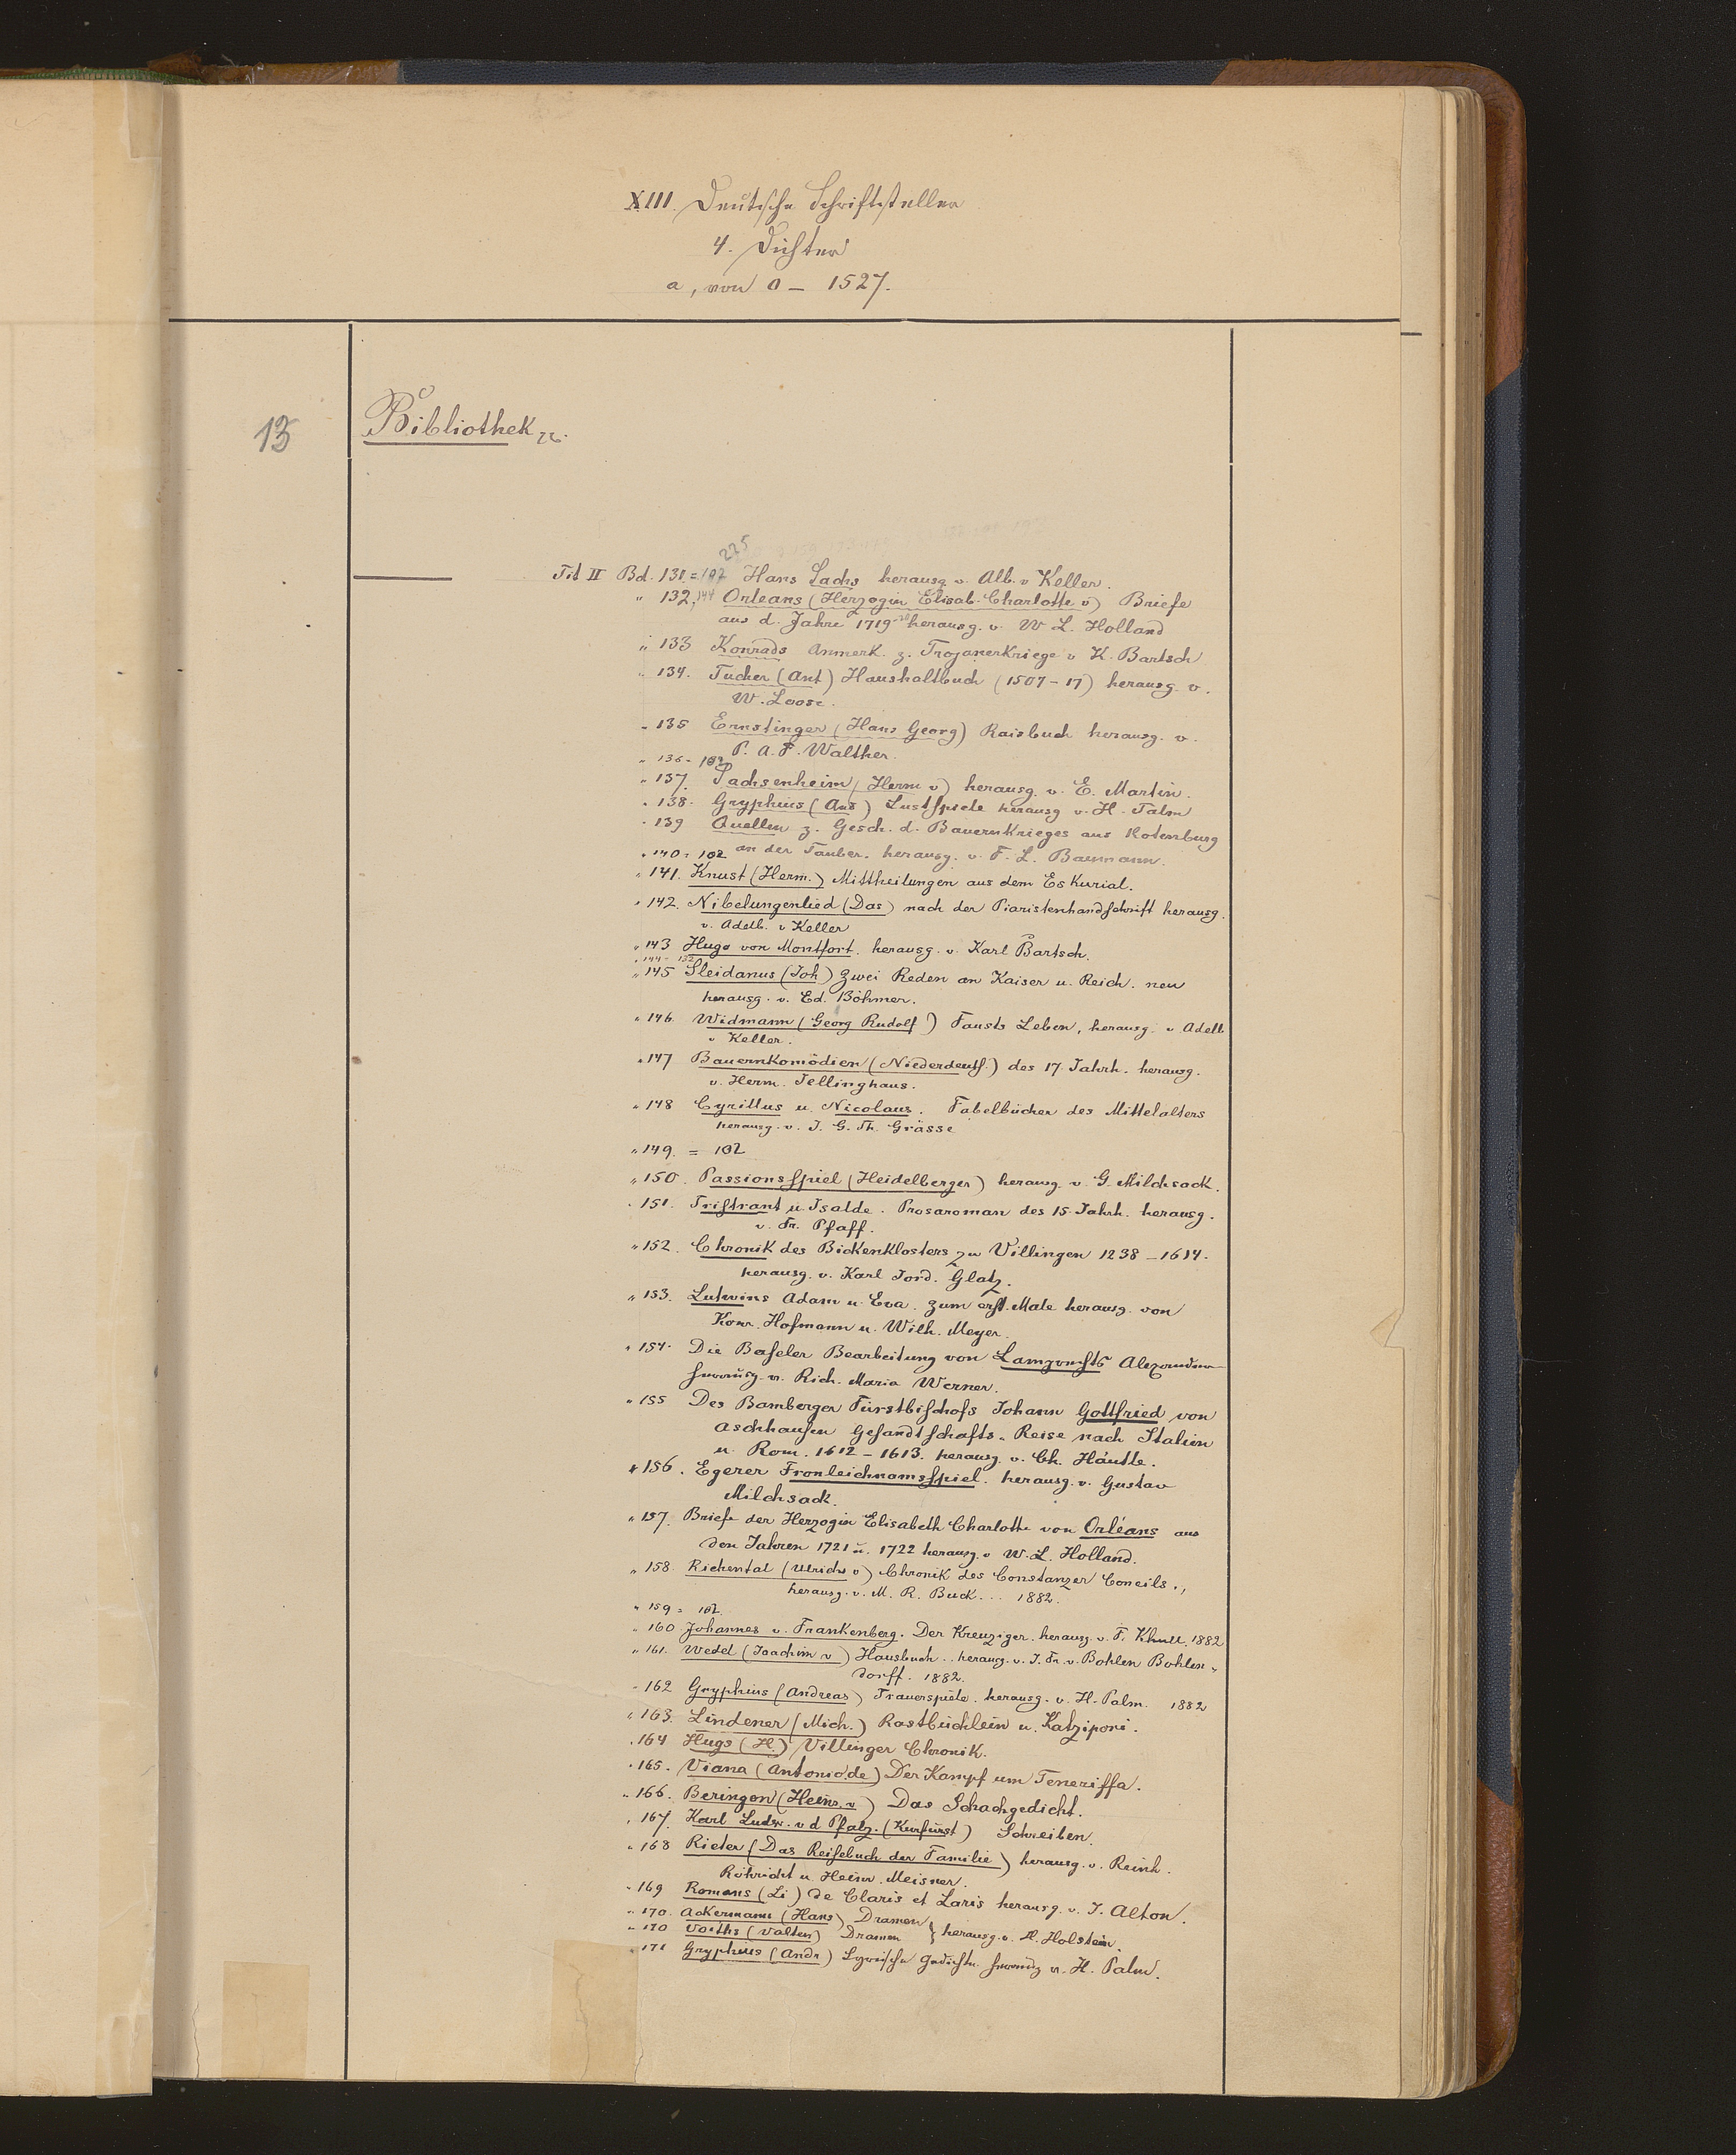 XIII. Deutsche Schriftsteller
4. Dichter
a, von 0 – 1527.
13
Bibliothek
225
Tit II Bd. 131 = 102 Hans Sachs herausg v. Alb. v Keller.
" 132, 144 Orleans (Herzogin Elisab. Charlotte v) Briefe
aus d. Jahre 1719-20 herausg. v. W L. Holland
" 133 Konrads Anmerk. z. Trojanerkriege v K. Bartsch
" 134. Tucher (Ant) Haushaltbuch (1507–17) herausg. v.
W. Loose.
" 135 Ernstinger (Hans Georg) Raisbuch herausg. v.
P. A. F. Walther.
" 136 = 102
" 137. Sachsenheim (Herm v) herausg. v. E. Martin.
" 138. Gryphius (And) Lustspiele herausg v. H. Palm
" 139 Quellen z. Gesch. d. Bauernkrieges aus Rotenburg
an der Tauber. herausg. v. F. L. Baumann.
" 140 = 102
" 141. Knust (Herm.) Mittheilungen aus dem Eskurial.
" 142. Nibelungenlied (Das) nach der Piaristenhandschrift herausg.
v. Adelb. v Keller
" 143 Hugo von Montfort. herausg. v. Karl Bartsch.
" 144 = 132
" 145 Sleidanus (Joh) Zwei Reden an Kaiser u. Reich. neu
herausg. v. Ed. Böhmer.
" 146. Widmann (Georg Rudolf) Fausts Leben, herausg. v Adelb
v Keller.
" 147 Bauernkomödien (Niederdeutsch.) des 17. Jahrh. herausg.
v. Herm. Jellinghaus.
" 148 Cyrillus u. Nicolaus. Fabelbücher des Mittelalters
herausg. v. J. G. Th. Grässe
" 149. = 102
" 150. Passionsspiel (Heidelberger) herausg. v. G. Milchsack.
" 151. Tristrant u. Isalde. Prosaroman des 15. Jahrh. herausg.
v. Fr. Pfaff.
" 152. Chronik des Bickenklosters zu Villingen 1238–1614.
herausg. v. Karl Jord. Glatz.
" 153. Lutwins Adam u. Eva. zum erst. Male herausg. von
Konr. Hofmann u. Wilh. Meyer.
" 154. Die Baseler Bearbeitung von Lamprechts Alexander
herausg. v. Rich. Maria Werner.
" 155 Des Bamberger Fürstbischofs Johann Gottfried von
Aschhausen Gesandtschafts-Reise nach Italien
u. Rom. 1612–1613. herausg. v. Ch. Häutle.
" 156. Egerer Fronleichnamsspiel. herausg. v. Gustav
Milchsack.
" 157. Briefe der Herzogin Elisabeth Charlotte von Orléans aus
den Jahren 1721 u. 1722 herausg. v W. L. Holland.
" 158. Richental (Ulrichs v) Chronik des Constanzer Concils.,
herausg. v. M. R. Buck... 1882.
" 159 = 102.
" 160 Johannes v. Frankenberg. Der Kreuziger. herausg. v. F. Khull. 1882
" 161. Wedel (Joachim v) Hausbuch.. herausg. v. J. Fr. v. Bohlen Bohlen-
dorff. 1882.
" 162 Gryphius (Andreas) Trauerspiele. herausg. v. H. Palm. 1882
" 163. Lindener (Mich.) Rastbüchlein u. Katziponi.
" 164 Hugs (H.) Villinger Chronik.
" 165. Viana (Antonio de) Der Kampf um Teneriffa.
" 166. Beringen (Heinr. v) Das Schachgedicht.
" 167. Karl Ludw. v d Pfalz. (Kurfürst) Schreiben.
" 168 Rieter (Das Reisebuch der Familie) herausg. v. Reinh.
Röhricht u. Heinr. Meisner.
" 169 Romans (Li) de Claris et Laris herausg. v. J. Alton.
" 170. Ackermann (Hans) Dramen
" 170 Voiths (Valten) Dramen } herausg. v. H. Holstein.
" 171 Gryphius (Andr) Lyrische Gedichte herausg v. H. Palm.